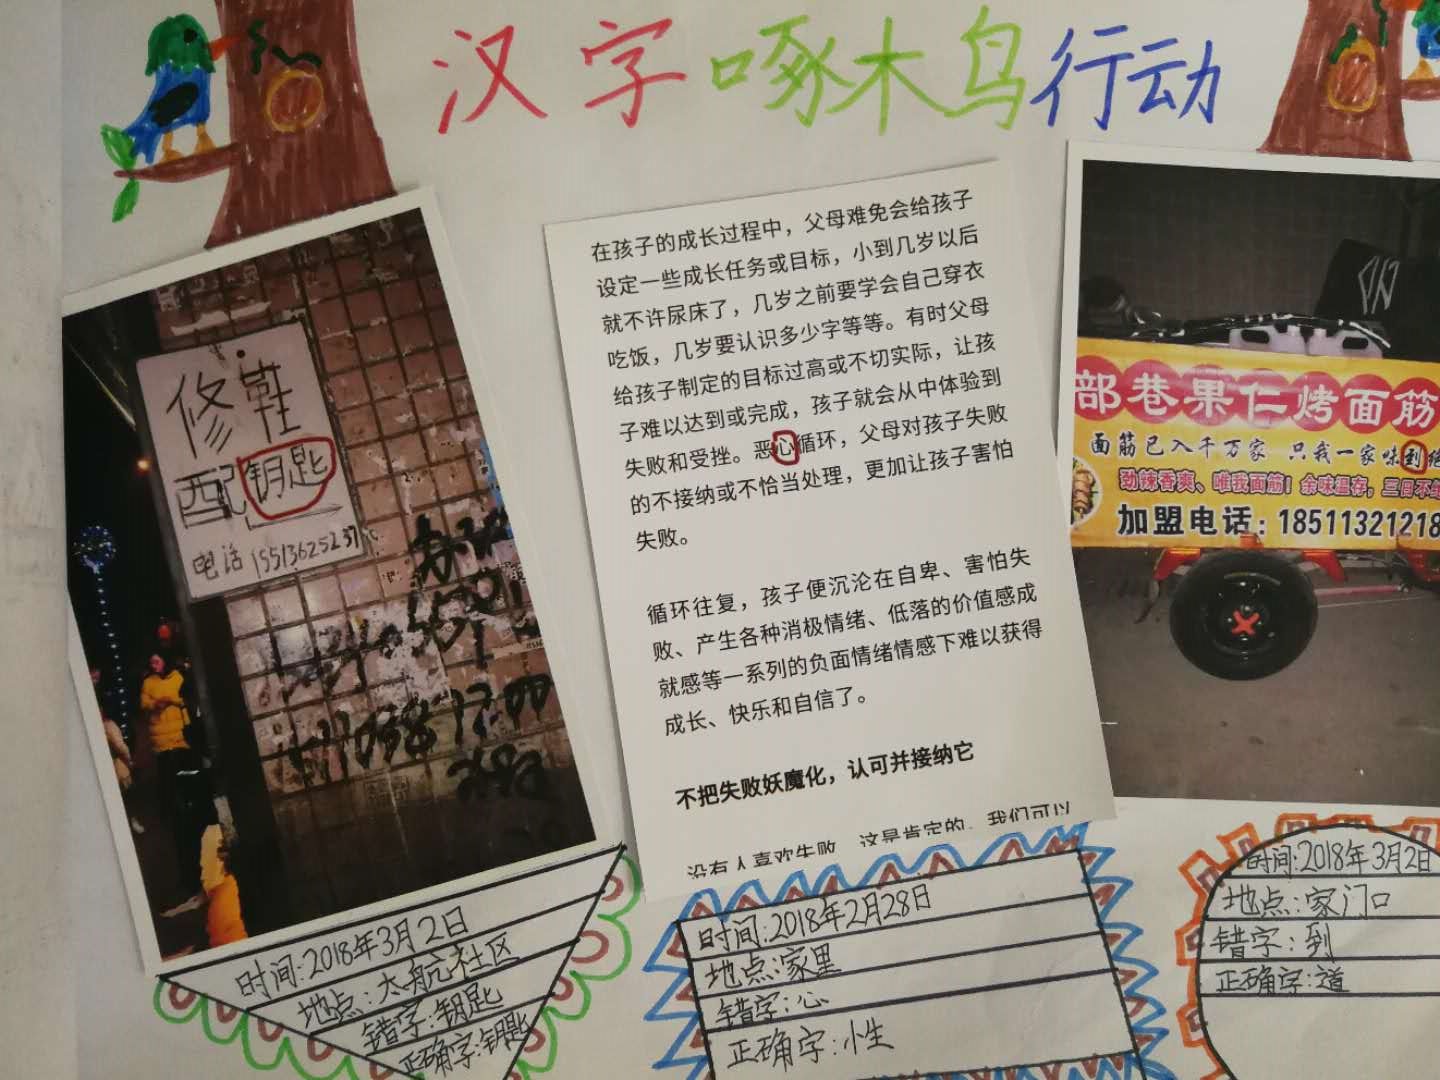 汉字啄木鸟行动
修鞋
配钥匙
电话 15513625237
在孩子的成长过程中，父母难免会给孩子
设定一些成长任务或目标，小到几岁以后
就不许尿床了，几岁之前要学会自己穿衣
吃饭，几岁要认识多少字等等。有时父母
给孩子制定的目标过高或不切实际，让孩
子难以达到或完成，孩子就会从中体验到
失败和受挫。恶心循环，父母对孩子失败
的不接纳或不恰当处理，更加让孩子害怕
失败。
循环往复，孩子便沉沦在自卑、害怕失
败、产生各种消极情绪、低落的价值感成
就感等一系列的负面情绪情感下难以获得
成长、快乐和自信了。
不把失败妖魔化，认可并接纳它
没有人喜欢失败，这是肯定的，我们可以
部巷果仁烤面筋
面筋已入千万家 只我一家味到绝
劲辣香爽、唯我面筋！余味温存，三日不绝
加盟电话：18511321218
时间:2018年3月2日
地点:太航社区
错字:钥匙
正确字:钥匙
时间:2018年2月28日
地点:家里
错字:心
正确字:性
时间:2018年3月2日
地点:家门口
错字:到
正确字:道